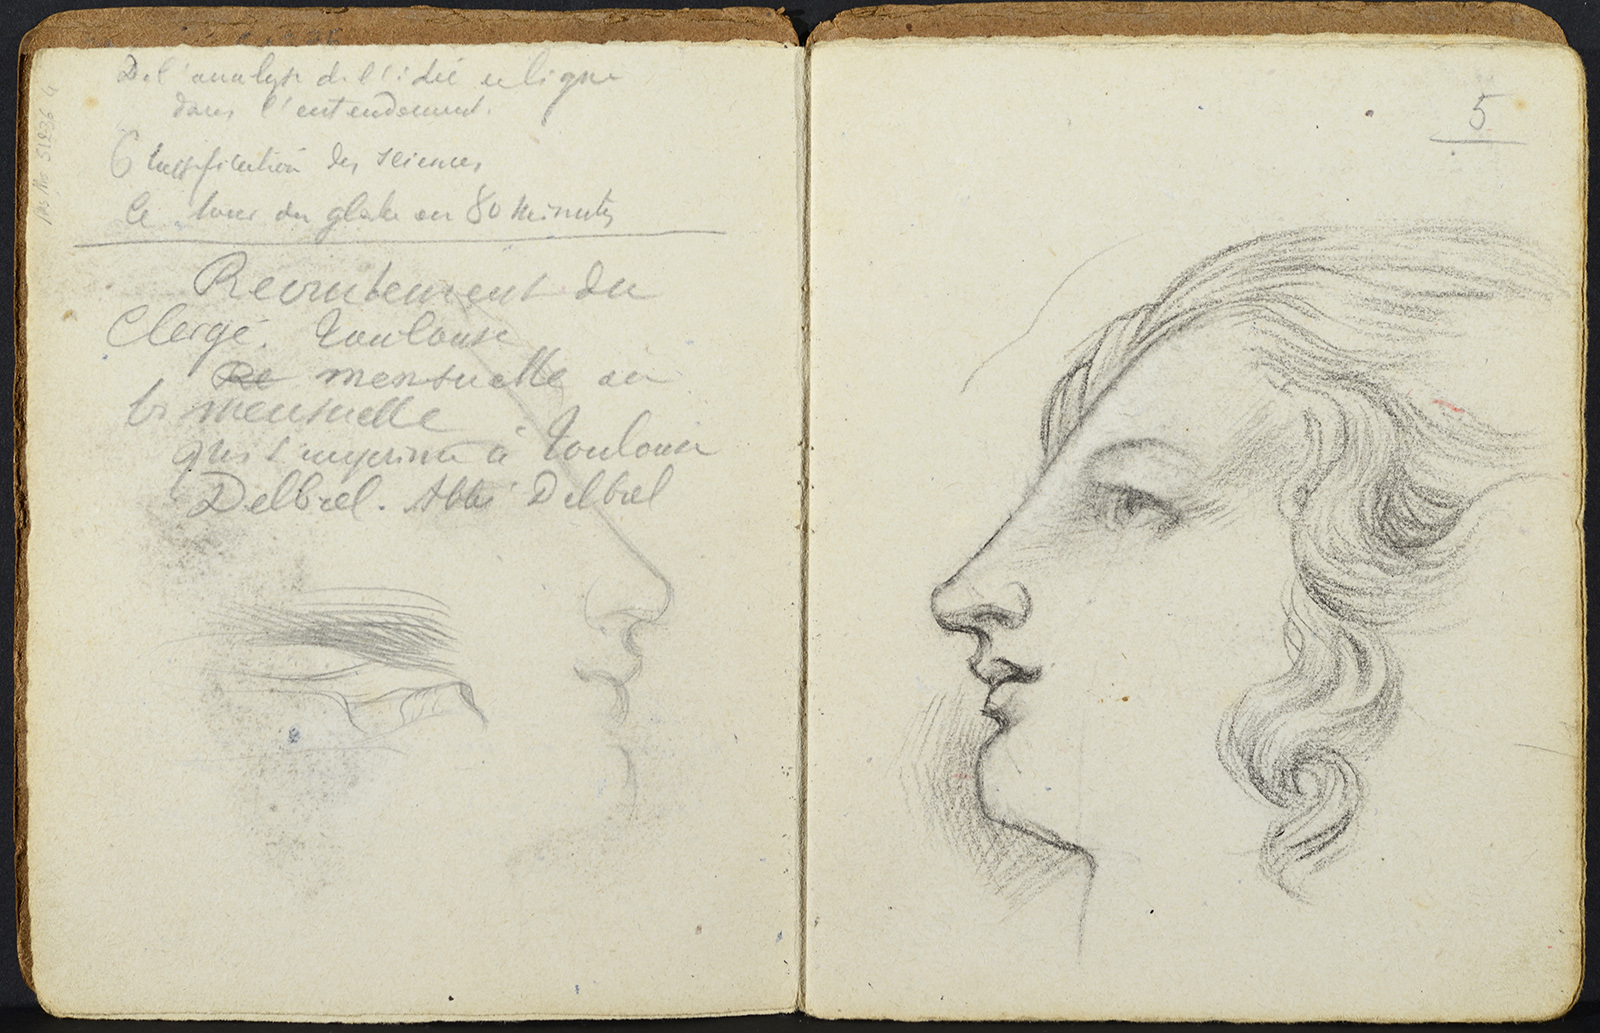 De l'analyse de l'idée en ligne
dans l'entendement.
Classification des sciences
Le tour du globe en 80 minutes
Recrutement du
Clergé. Toulouse
Re mensuelle ou
bi mensuelle
qui s'imprime à Toulouse
Delbrel. Abbé Delbrel
5